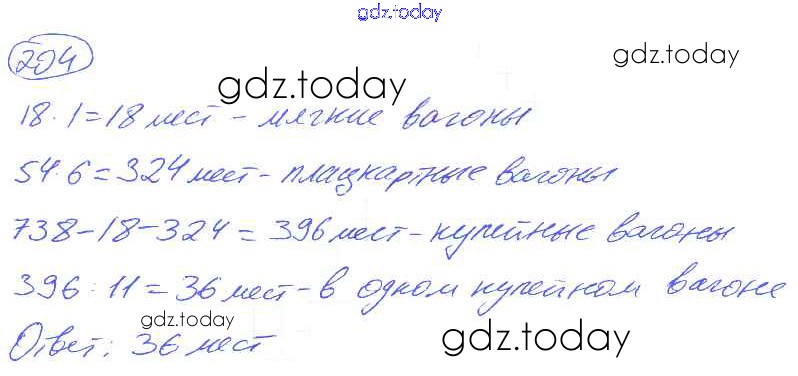 gdz.today
204
gdz.today
gdz.today
18·1=18 мест - мягкие вагоны
54·6=324 мест - плацкартные вагоны
738-18-324=396 мест - купейные вагоны
396:11=36 мест - в одном купейном вагоне
gdz.today
Ответ: 36 мест
gdz.today